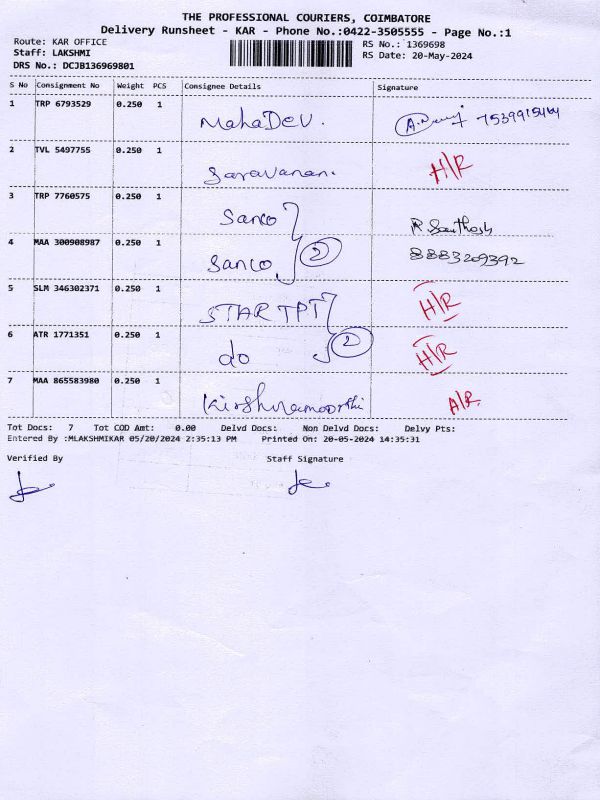 THE PROFESSIONAL COURIERS, COIMBATORE
Delivery Runsheet - KAR - Phone No.:0422-3505555 - Page No.:1
Route: KAR OFFICE
RS No.: 1369698
Staff: LAKSHMI
RS Date: 20-May-2024
DRS No.: DCJB136969801
S No Consignment No Weight PCS Consignee Details Signature
1 TRP 6793529 0.250 1 MahaDev.
2 TVL 5497755 0.250 1 Saravanan. H/R
3 TRP 7760575 0.250 1 Sanco R. Santhosh
4 MAA 300908987 0.250 1 Sanco 2 8883209392
5 SLM 346302371 0.250 1 STAR TPT H/R
6 ATR 1771351 0.250 1 do 2 H/R
7 MAA 865583980 0.250 1 Kirshnamoorthi A/R.
Tot Docs: 7 Tot COD Amt: 0.00 Delvd Docs: Non Delvd Docs: Delvy Pts:
Entered By :MLAKSHMIKAR 05/20/2024 2:35:13 PM Printed On: 20-05-2024 14:35:31
Verified By Staff Signature